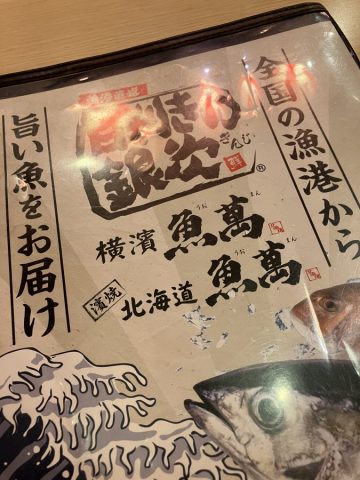 全国の漁港から
目利きの
銀次
ぎんじ
®
横濱 魚萬
うお まん
濱焼 北海道 魚萬
うお まん
旨い魚をお届け